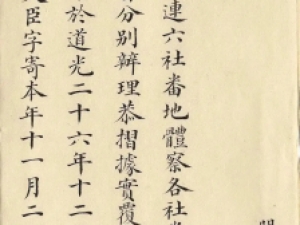 連六社番地體察各社
分別辦理恭摺據實覆
於道光二十六年十二
臣字寄本年十一月二